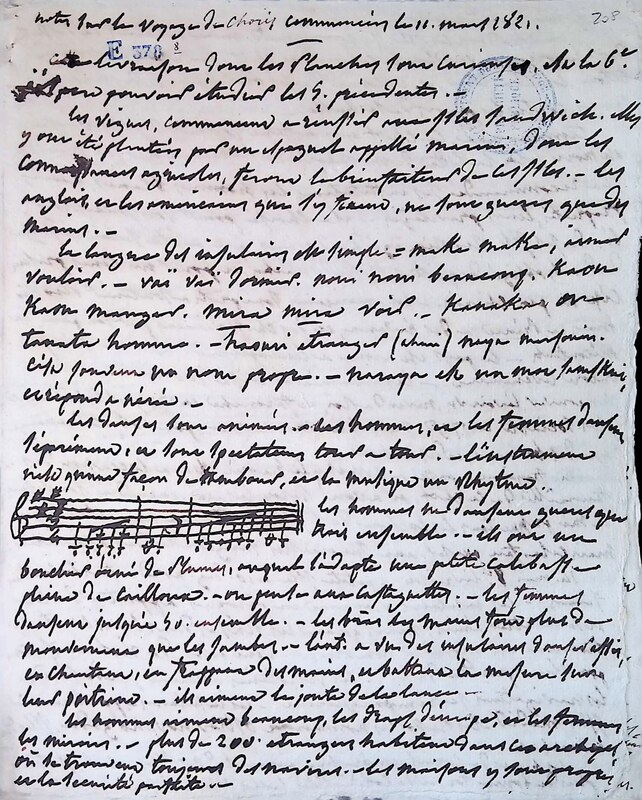 notes sur le voyage de Choris commencées le 11. mars 1821.
208
E 370 8
livraison dont les Planches sont curieuses, est la 6e
pour pouvoir étudier les 5. précédentes. –
les vignes, commencent a réussir aux isles sandwick. elles
y ont été plantées par un espagnol appellé marini, dont les
connaissances agricoles, feront le bienfaiteur de ces isles. – les
anglois, et les américains qui s'y trouvent, ne sont gueres que des
marins. –
la langue des insulaires est simple = make make, aimer
vouloir. – vaï vaï dormir. noui noui beaucoup. Kaou
Kaou manger. mira mira voir. – Kanaka ou
tanata homme. – haouri étranger (ahuri) naya marsouin.
c'est souvent un nom propre. – naraya est un mot sanskrit,
répond a nérée. –
les danses sont animées. – les hommes, et les femmes dansent
séparément, et sont spectateurs tour a tour. – l'instrument
n'est qu'une façon de tambour, et la musique un Rhytme.
les hommes ne dansent gueres que
trois ensemble. – ils ont un
bouclier orné de Plumes, auquel s'adapte une petite calebasse
pleine de cailloux. – on pense aux castagnettes. – les femmes
dansent jusqu'a 50. ensemble. – les bras les mains font plus de
mouvemens que les jambes. – l'aut. a vu des insulaires danser assis,
en chantant, en frappant des mains, et battant la mesure sur
leur poitrine. – ils aiment la joute de la lance –
les hommes aiment beaucoup, les draps d'europe, et les femmes
les miroirs. – plus de 200. étrangers habitent dans cet archipel
où se trouvent toujours des navires. – les maisons y sont propres
et la sécurité parfaite. –